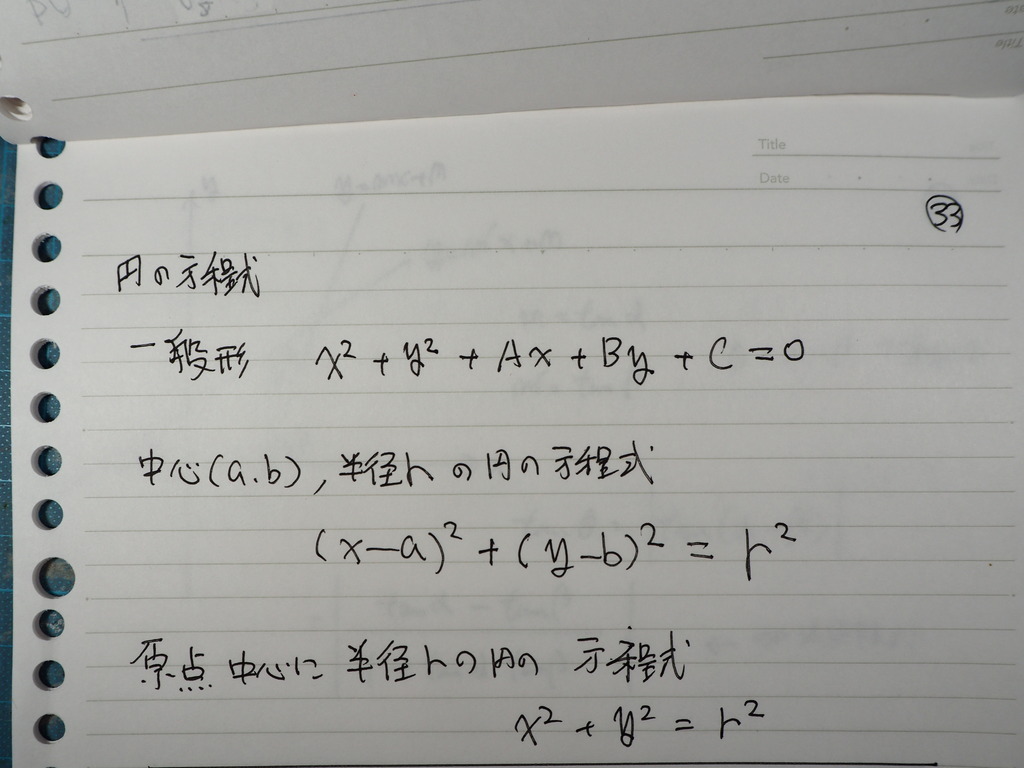 Title
Date
㉝
円の方程式
一般形 x² + y² + Ax + By + C = 0
中心(a.b), 半径rの円の方程式
(x-a)² + (y-b)² = r²
原点中心に半径rの円の 方程式
x² + y² = r²